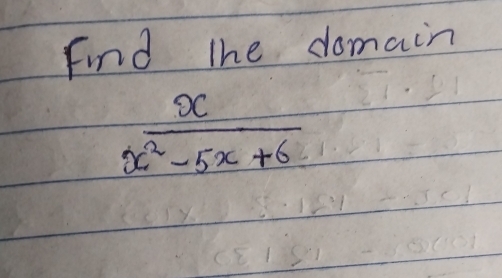 Find the domain
x
x² - 5x + 6